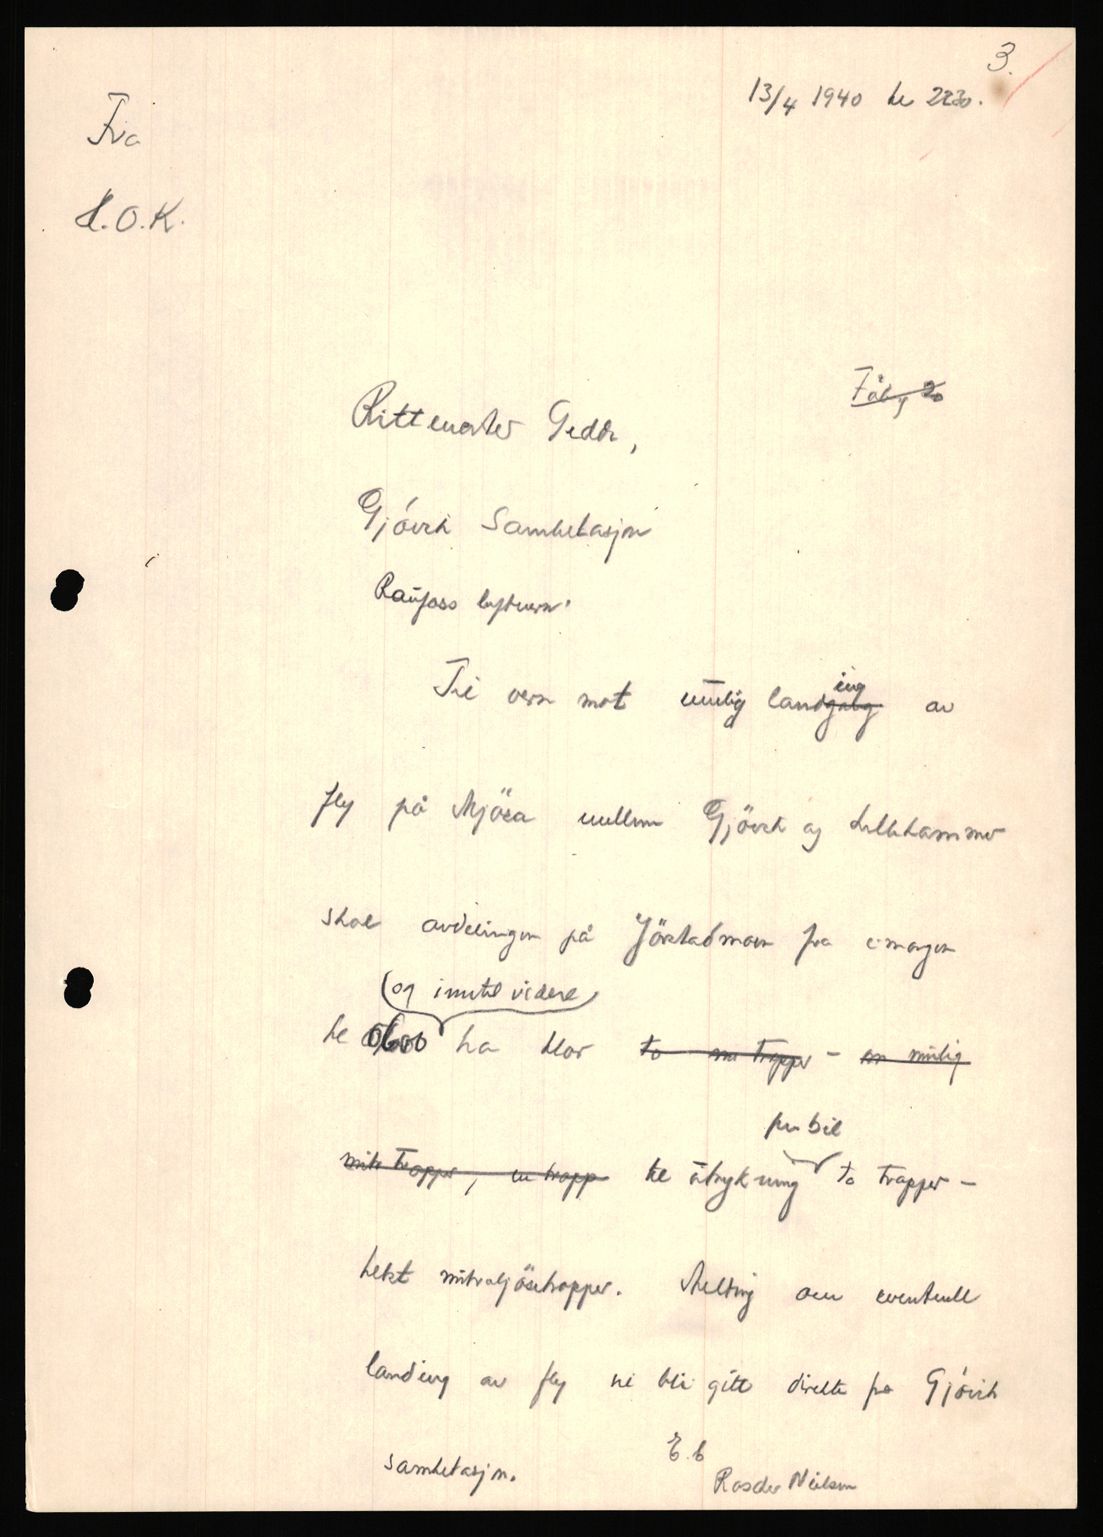 3.
13/4 1940 kl 2230.
Fra
H.O.K.
Fåbg 20
Rittmester Gedde,
Gjövik Sambstasjon
Raufoss luftvern.
Til vern mot mulig landgang ing av
fly på Mjösa mellem Gjövik og Lillehammer
skal avdelingen på Jörstadmoen fra i morgen
(og inntil videre)
kl 0600 ha klar to mtr tropper - en mulig
per bil
mitr tropper, en tropp til utrykning to tropper -
helst mitraljösetropper. Melding om eventuell
landing av fly vil bli gitt direkte fra Gjövik
sambstasjon.
E.b
Roscher Nielsen